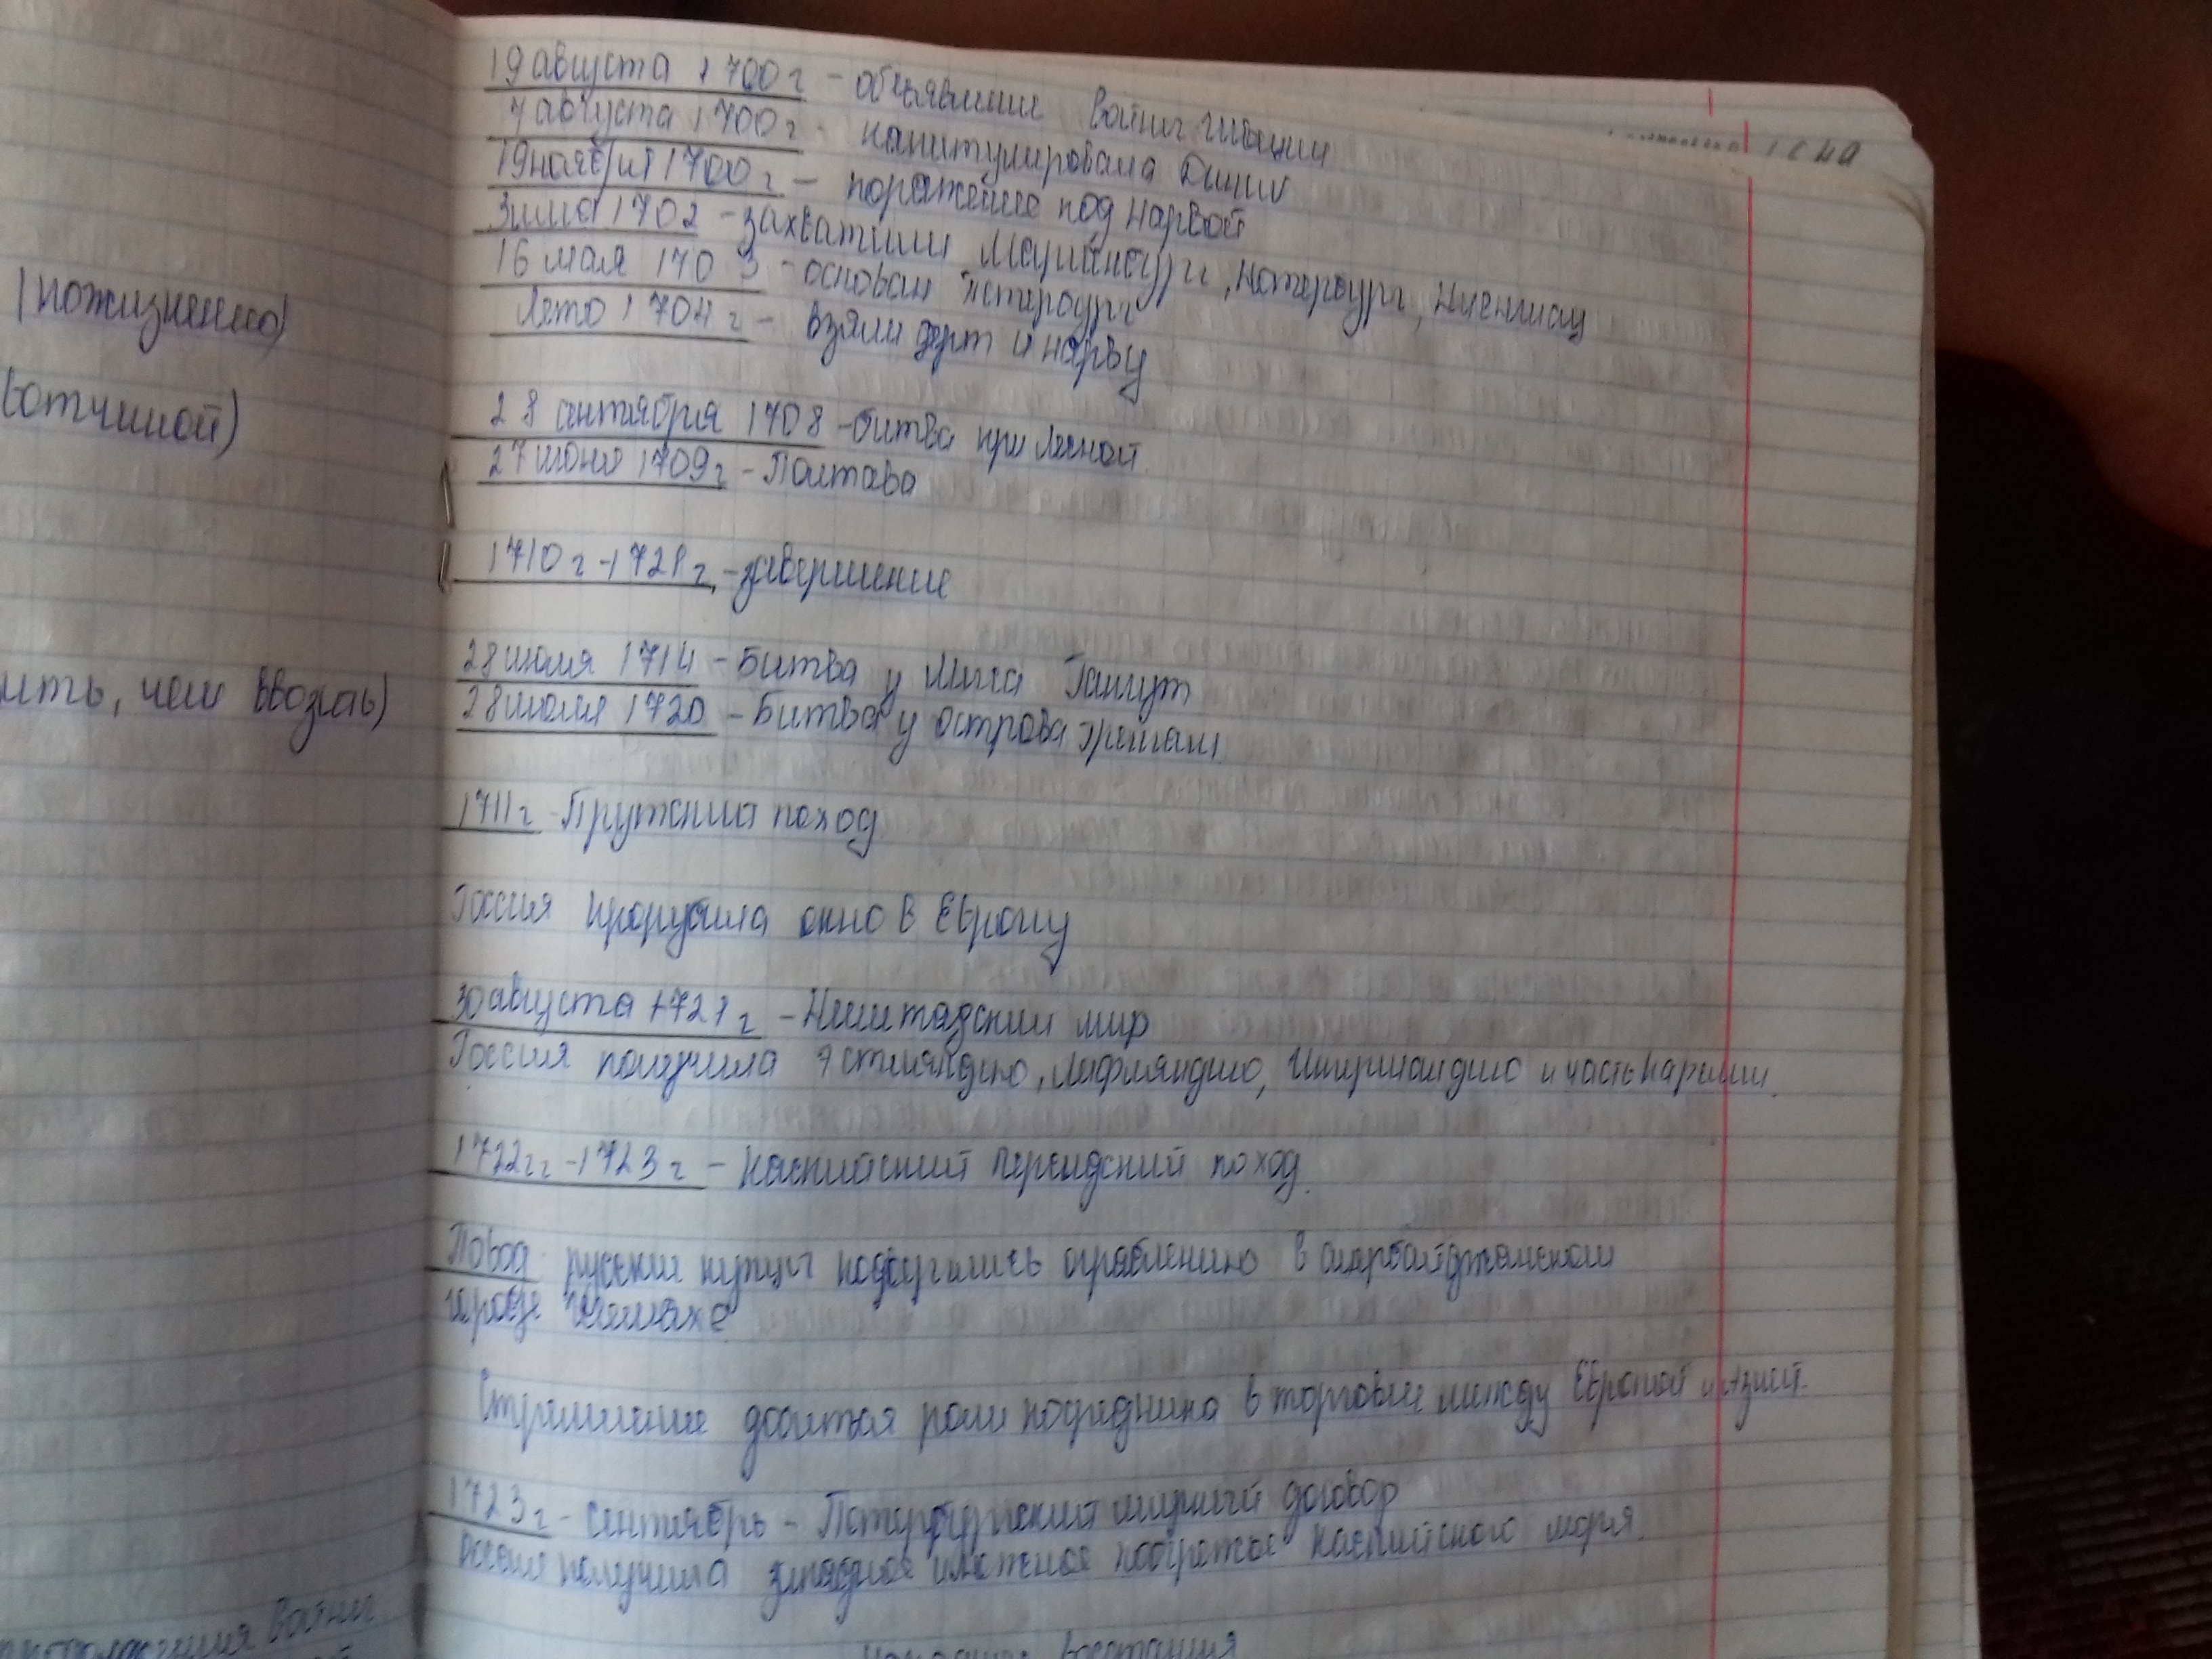 19 августа 1700 г - объявление войны Швеции
7 августа 1700 г. капитулировала Дания
19 ноября 1700 г - поражение под Нарвой
Зима 1702 - захватили Мариенбург, Нотербург, Ниеншац
16 мая 1703 - основан Петербург
Лето 1704 г - взяли дерпт и нарву
28 сентября 1708 - битва при Лесной
27 июня 1709 г - Полтава
1710 г - 1721 г. - завершение
28 июля 1714 - Битва у Мыса Гангут
28 июля 1720 - Битва у острова Гренгам
1711 г - Прутский поход
Россия прорубила окно в Европу
30 августа 1721 г - Ништадский мир
Россия получила Эстляндию, Лифляндию, Ингрмландию и часть Карелии.
1722 г - 1723 г - Каспийский персидский поход.
Повод русские купцы подверглись ограблению в азербайджанском
городе Шемахе
Стремление добиться роли посредника в торговле между Европой и Азией
1723 г - сентябрь - Петербургский мирный договор
Россия получила западное и южное побережье Каспийского моря.
восстания
(пожизненно)
вотчиной)
чем ввозить)
войны